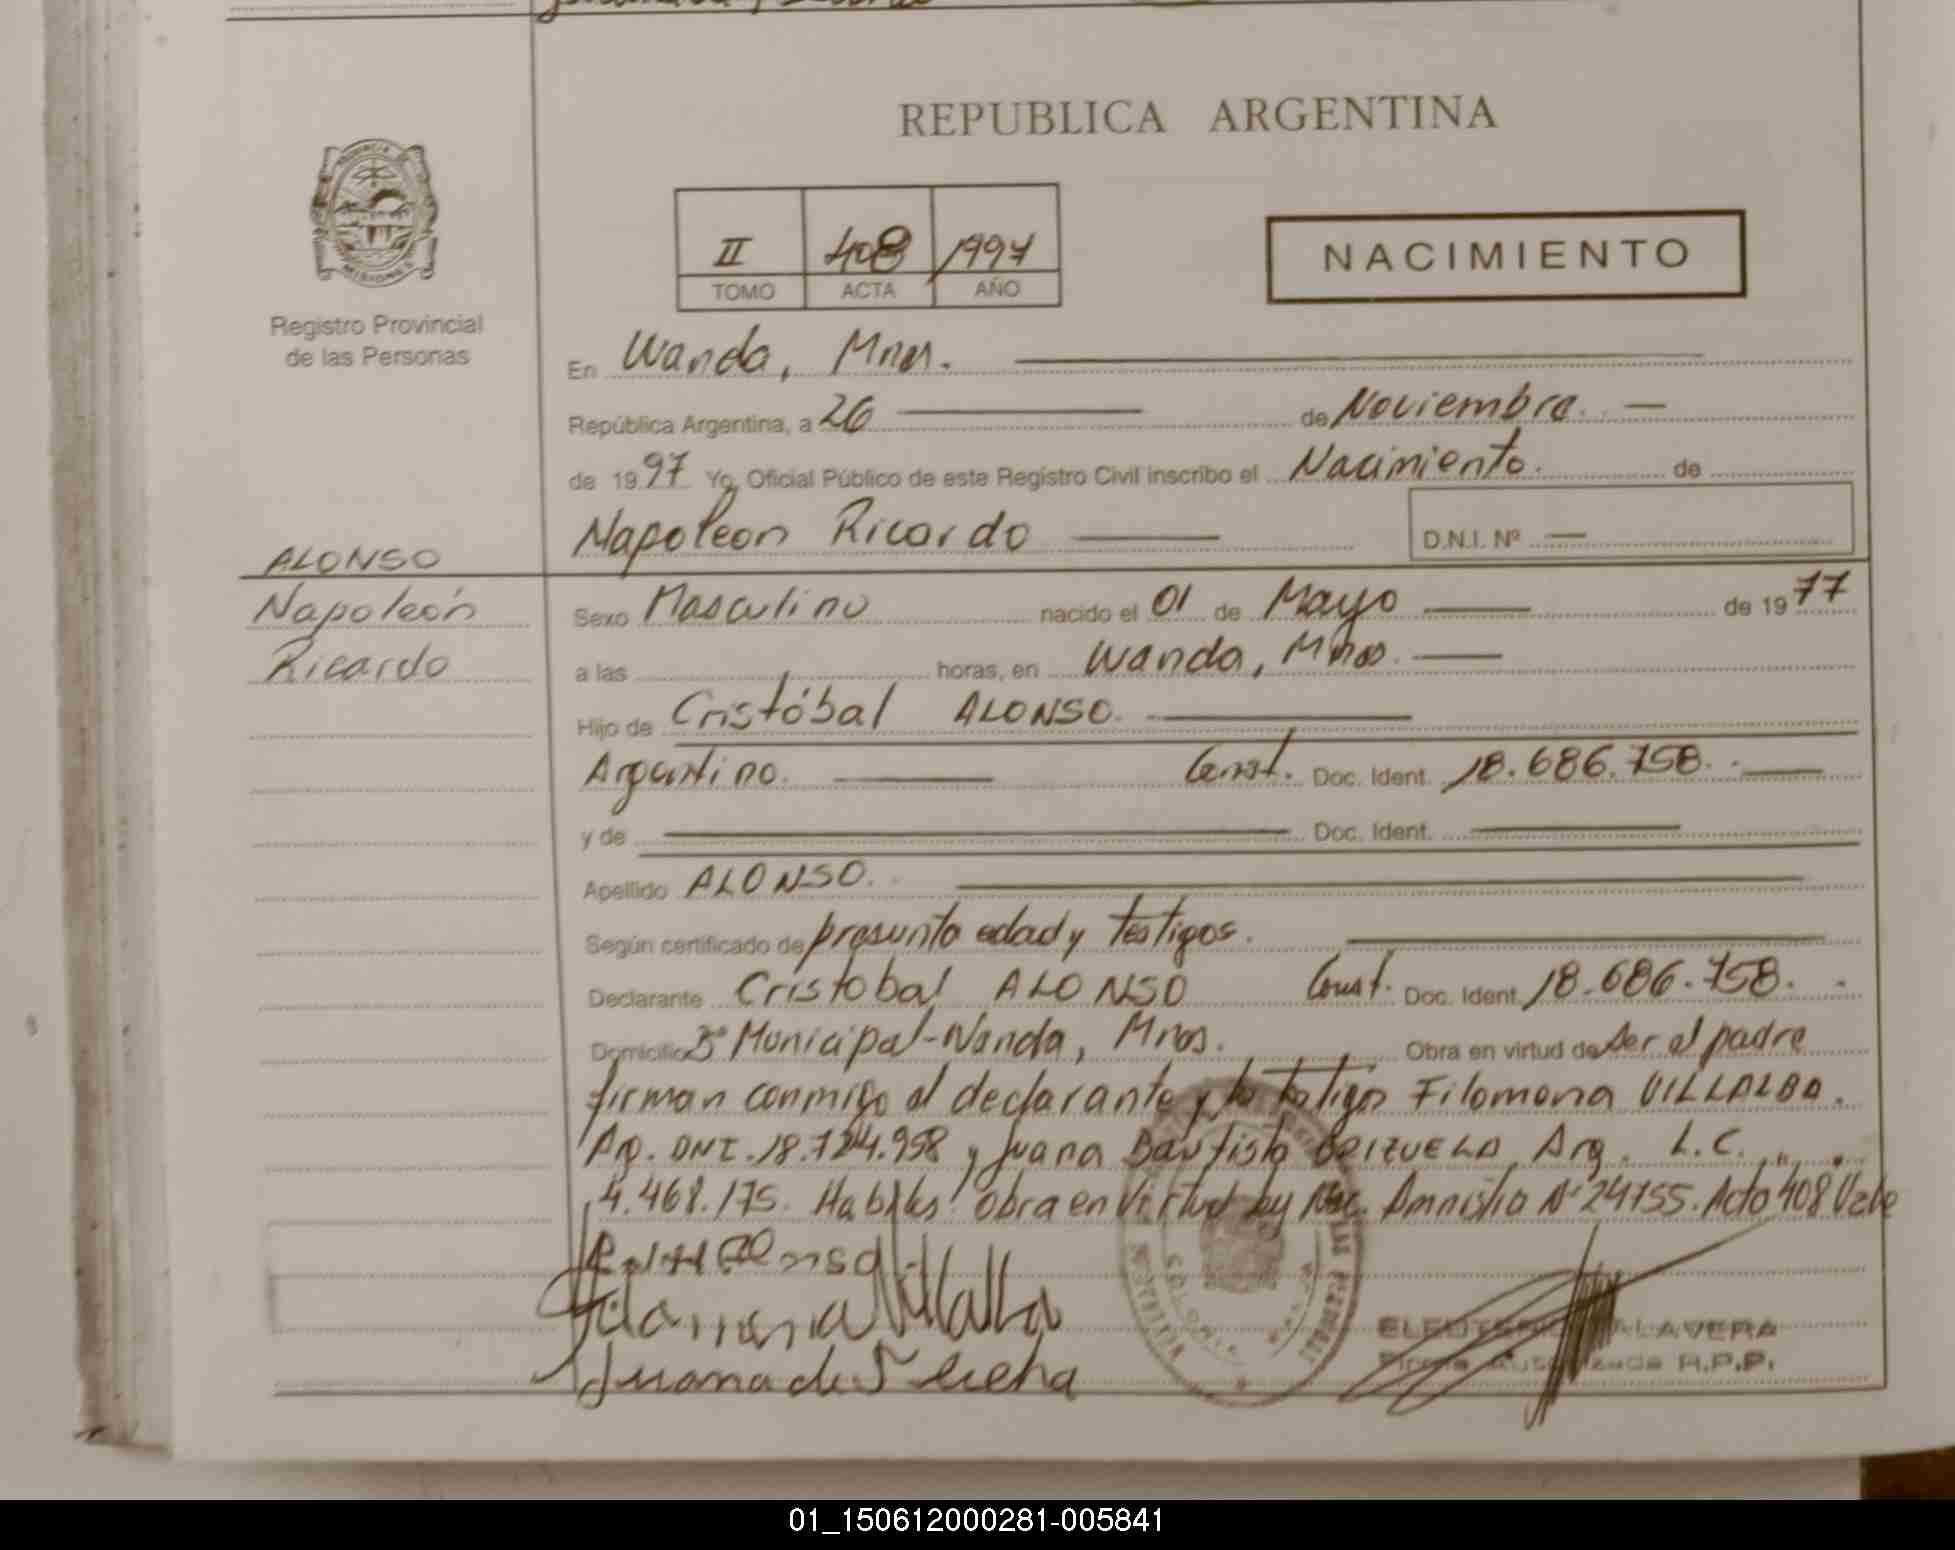 REPUBLICA ARGENTINA
PROVINCIA DE
MISIONES
Registro Provincial
de las Personas
II 408 1997
TOMO ACTA AÑO
NACIMIENTO
En Wanda, Mnes.
República Argentina, a 26 de Noviembre.
de 1997 Yo, Oficial Público de este Registro Civil inscribo el Nacimiento. de
Napoleon Ricardo D.N.I. Nº
ALONSO
Napoleón
Ricardo
Sexo Masculino nacido el 01 de Mayo de 1977
a las horas, en Wanda, Mnes.
Hijo de Cristóbal ALONSO.
Argentino. Const. Doc. Ident. 18.686.758.
y de Doc. Ident.
Apellido ALONSO.
Según certificado de presunta edad y testigos.
Declarante Cristobal ALONSO Const. Doc. Ident. 18.686.758.
Domicilio Bº Municipal-Wanda, Mnes. Obra en virtud de ser el padre
firman conmigo el declarante y testigos Filomena VILLALBA.
Arg. DNI. 18.724.958 y Juana Bautista BRIZUELA Arg. L.C.
4.468.175. Habiles! Obra en Virtud Ley Nac. Amnistia Nº 24755. Acta 408 Vale
Filomena Villalba
Juana de
ELEUTERIO TALAVERA
Firma Autorizada R.P.P.
01_150612000281-005841